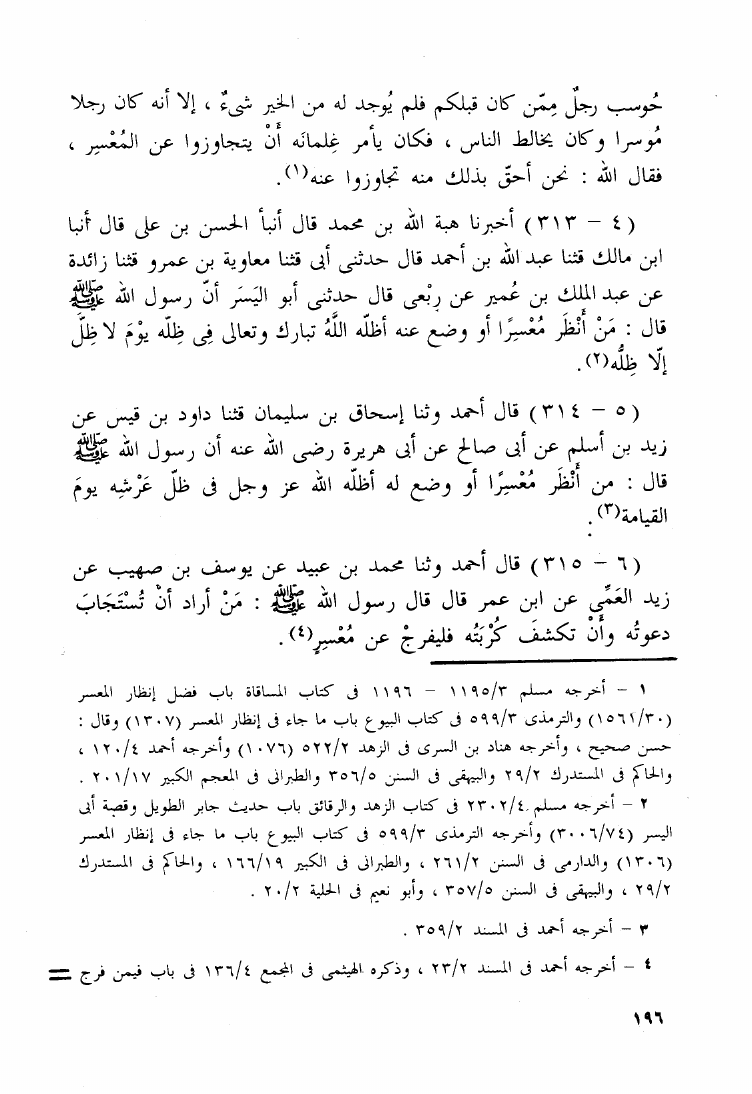 حُوسب رجلٌ مِمّن كان قبلكم فلم يُوجد له من الخير شىءٌ ، إلا أنه كان رجلا
مُوسرا وكان يخالط الناس ، فكان يأمر غِلمانَه أَنْ يتجاوزوا عن المُعْسِر ،
فقال الله : نحن أحقّ بذلك منه تجاوزوا عنه(١).
(٤ – ٣١٣) أخبرنا هبة الله بن محمد قال أنبأ الحسن بن على قال أنبا
ابن مالك قثنا عبد الله بن أحمد قال حدثنى أبى قثنا معاوية بن عمرو قثنا زائدة
عن عبد الملك بن عُمير عن رِبْعى قال حدثنى أبو اليَسَر أنّ رسول الله ﷺ
قال : مَنْ أَنْظَر مُعْسِرًا أو وضع عنه أظلّه اللَّهُ تبارك وتعالى فِى ظِلّه يوْمَ لا ظِلَّ
إلّا ظِلُّه(٢).
(٥ – ٣١٤) قال أحمد وثنا إسحاق بن سليمان قثنا داود بن قيس عن
زيد بن أسلم عن أبى صالح عن أبى هريرة رضى الله عنه أن رسول الله ﷺ
قال : من أَنْظَر مُعْسِرًا أو وضع له أظلّه الله عز وجل فى ظلّ عَرْشِه يومَ
القيامة(٣).
(٦ – ٣١٥) قال أحمد وثنا محمد بن عبيد عن يوسف بن صهيب عن
زيد العَمِّى عن ابن عمر قال قال رسول الله ﷺ : مَنْ أراد أنْ تُسْتَجَابَ
دعوتُه وأَنْ تكشفَ كُرْبَتُه فليفرجْ عن مُعْسِرٍ(٤).
١ – أخرجه مسلم ١١٩٥/٣ – ١١٩٦ فى كتاب المساقاة باب فضل إنظار المعسر
(١٥٦١/٣٠) والترمذى ٥٩٩/٣ فى كتاب البيوع باب ما جاء فى إنظار المعسر (١٣٠٧) وقال :
حسن صحيح ، وأخرجه هناد بن السرى فى الزهد ٥٢٢/٢ (١٠٧٦) وأخرجه أحمد ١٢٠/٤ ،
والحاكم فى المستدرك ٢٩/٢ والبيهقى فى السنن ٣٥٦/٥ والطبرانى فى المعجم الكبير ٢٠١/١٧ .
٢ – أخرجه مسلم ٢٣٠٢/٤ فى كتاب الزهد والرقائق باب حديث جابر الطويل وقصة أبى
اليسر (٣٠٠٦/٧٤) وأخرجه الترمذى ٥٩٩/٣ فى كتاب البيوع باب ما جاء فى إنظار المعسر
(١٣٠٦) والدارمى فى السنن ٢٦١/٢ ، والطبرانى فى الكبير ١٦٦/١٩ ، والحاكم فى المستدرك
٢٩/٢ ، والبيهقى فى السنن ٣٥٧/٥ ، وأبو نعيم فى الحلية ٢٠/٢ .
٣ – أخرجه أحمد فى المسند ٣٥٩/٢ .
٤ – أخرجه أحمد فى المسند ٢٣/٢ ، وذكره الهيثمى فى المجمع ١٣٦/٤ فى باب فيمن فرج =
١٩٦